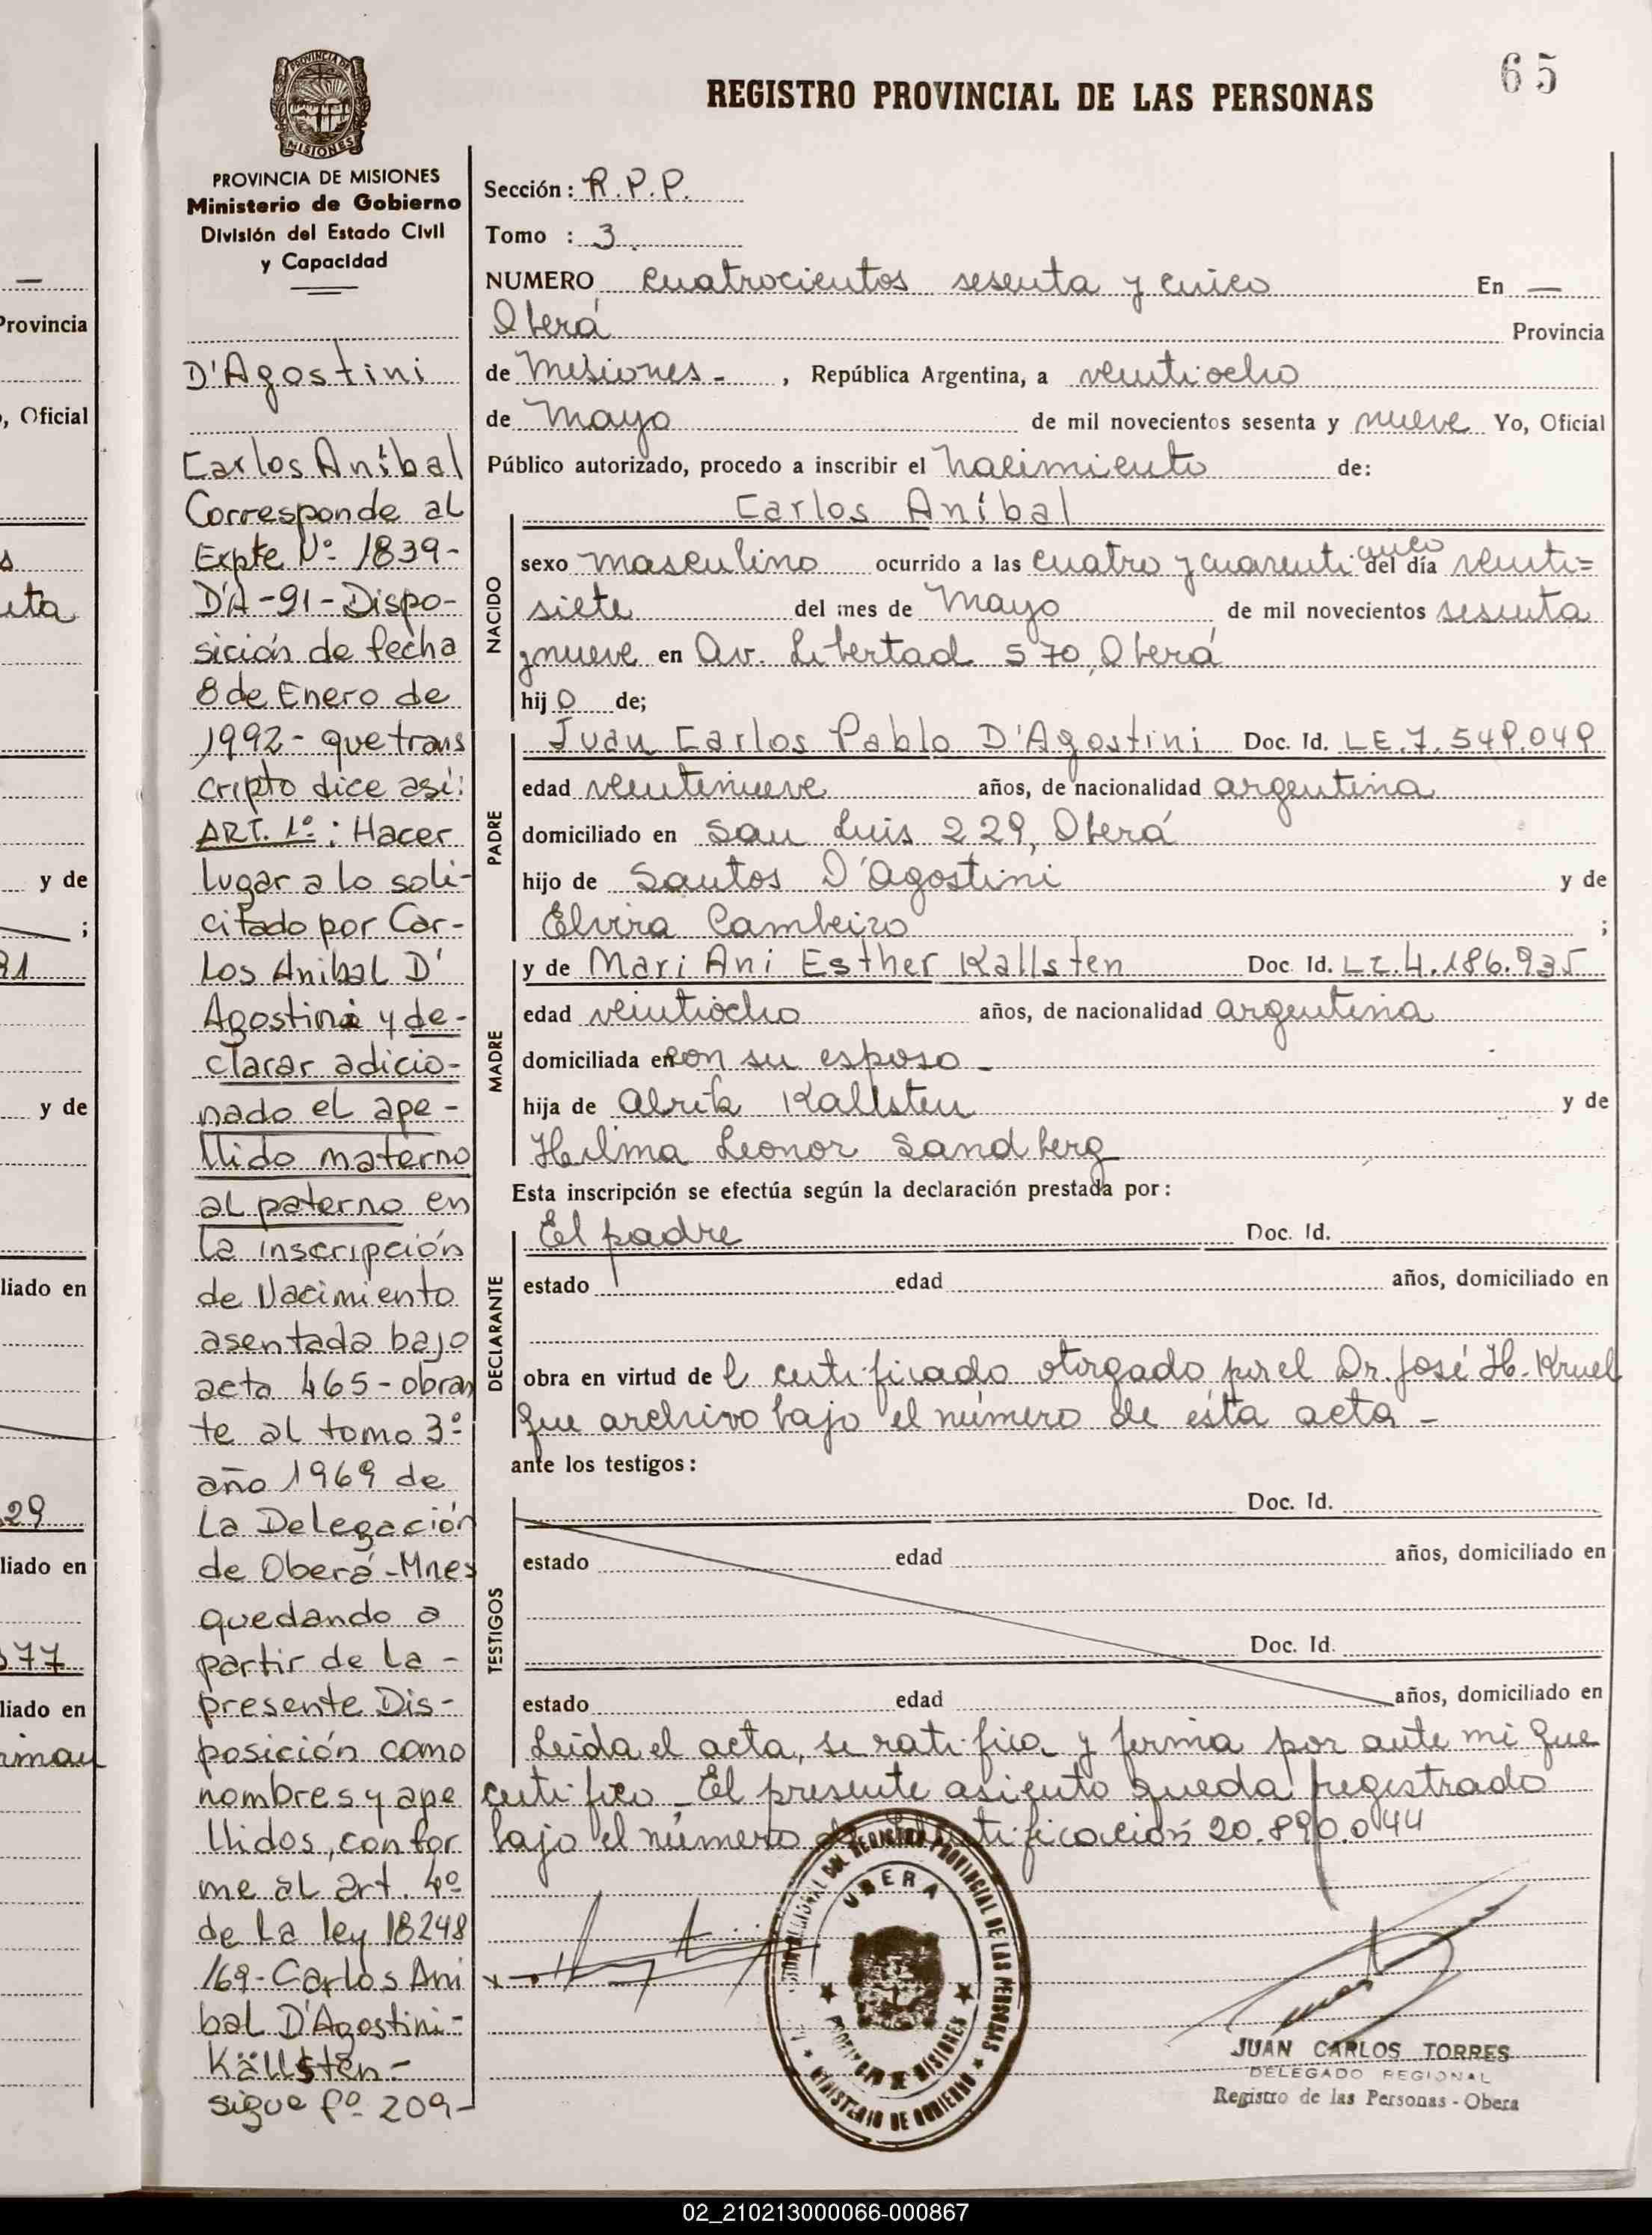 65
REGISTRO PROVINCIAL DE LAS PERSONAS
PROVINCIA DE
MISIONES
PROVINCIA DE MISIONES
Ministerio de Gobierno
División del Estado Civil
y Capacidad
D'Agostini
Carlos Aníbal
Corresponde al
Expte Nº 1839-
D'A-91-Dispo-
sición de fecha
8 de Enero de
1992- que trans
cripto dice así:
ART. 1º: Hacer
lugar a lo soli-
citado por Car-
los Anibal D'
Agostini y de-
clarar adicio-
nado el ape-
llido materno
al paterno en
la inscripción
de Nacimiento
asentada bajo
acta 465-obran
te al tomo 3º
año 1969 de
La Delegación
de Oberá-Mnes
quedando a
partir de la -
presente Dis-
posición como
nombres y ape
llidos, confor
me al art. 4º
de la ley 18248
/69-Carlos Ani
bal D'Agostini-
Källsten-
sigue fº 209-
Sección: R.P.P.
Tomo : 3.
NUMERO cuatrocientos sesenta y cinco En —
Oberá Provincia
de Misiones - , República Argentina, a veintiocho
de Mayo de mil novecientos sesenta y nueve Yo, Oficial
Público autorizado, procedo a inscribir el nacimiento de:
Carlos Aníbal
NACIDO
sexo masculino ocurrido a las cuatro y cuarenti cinco del día veinti=
siete del mes de Mayo de mil novecientos sesenta
y nueve en Av. Libertad 570, Oberá
hijo de;
PADRE
Juan Carlos Pablo D'Agostini Doc. Id. LE.7.549.049
edad veintinueve años, de nacionalidad argentina
domiciliado en San Luis 229, Oberá
hijo de Santos D'Agostini y de
Elvira Cambeiro ;
MADRE
y de Mari Ani Esther Kallsten Doc. Id. LC.4.186.935
edad veintiocho años, de nacionalidad argentina
domiciliada en con su esposo -
hija de Alrik Kallsten y de
Hilma Leonor Sandberg
Esta inscripción se efectúa según la declaración prestada por:
DECLARANTE
El padre Doc. Id.
estado edad años, domiciliado en
obra en virtud de l certificado otorgado por el Dr. José H. Kruel
que archivo bajo el número de esta acta -
ante los testigos:
TESTIGOS
Doc. Id.
estado edad años, domiciliado en
Doc. Id.
estado edad años, domiciliado en
Leida el acta, se ratifica y firma por ante mi que
certifico - El presente asiento queda registrado
bajo el número de identificación 20.890.044
OBERA
REGISTRO PROVINCIAL DE LAS PERSONAS
PROVINCIA DE MISIONES
MINISTERIO DE GOBIERNO
JUAN CARLOS TORRES
DELEGADO REGIONAL
Registro de las Personas - Obera
Provincia
, Oficial
y de
;
y de
liado en
29
liado en
77
liado en
02_210213000066-000867